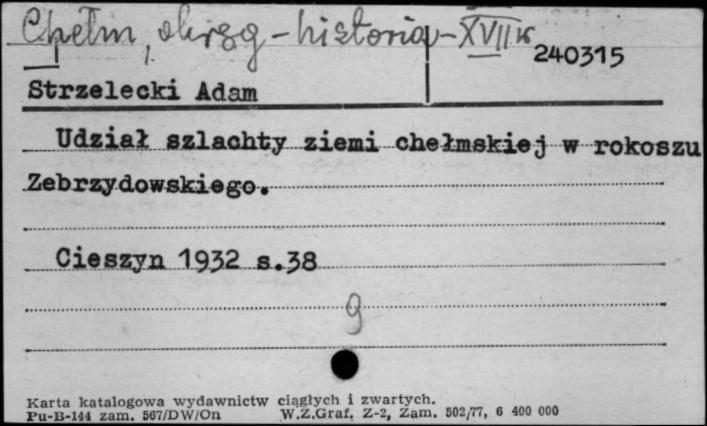 Chełm, okręg - historia - XVII w
240315
Strzelecki Adam
Udział szlachty ziemi chełmskiej w rokoszu
Zebrzydowskiego.
Cieszyn 1932 s.38
g
Karta katalogowa wydawnictw ciągłych i zwartych.
Pu-B-144 zam. 567/DW/On W.Z.Graf. Z-2, Zam. 502/77, 6 400 000